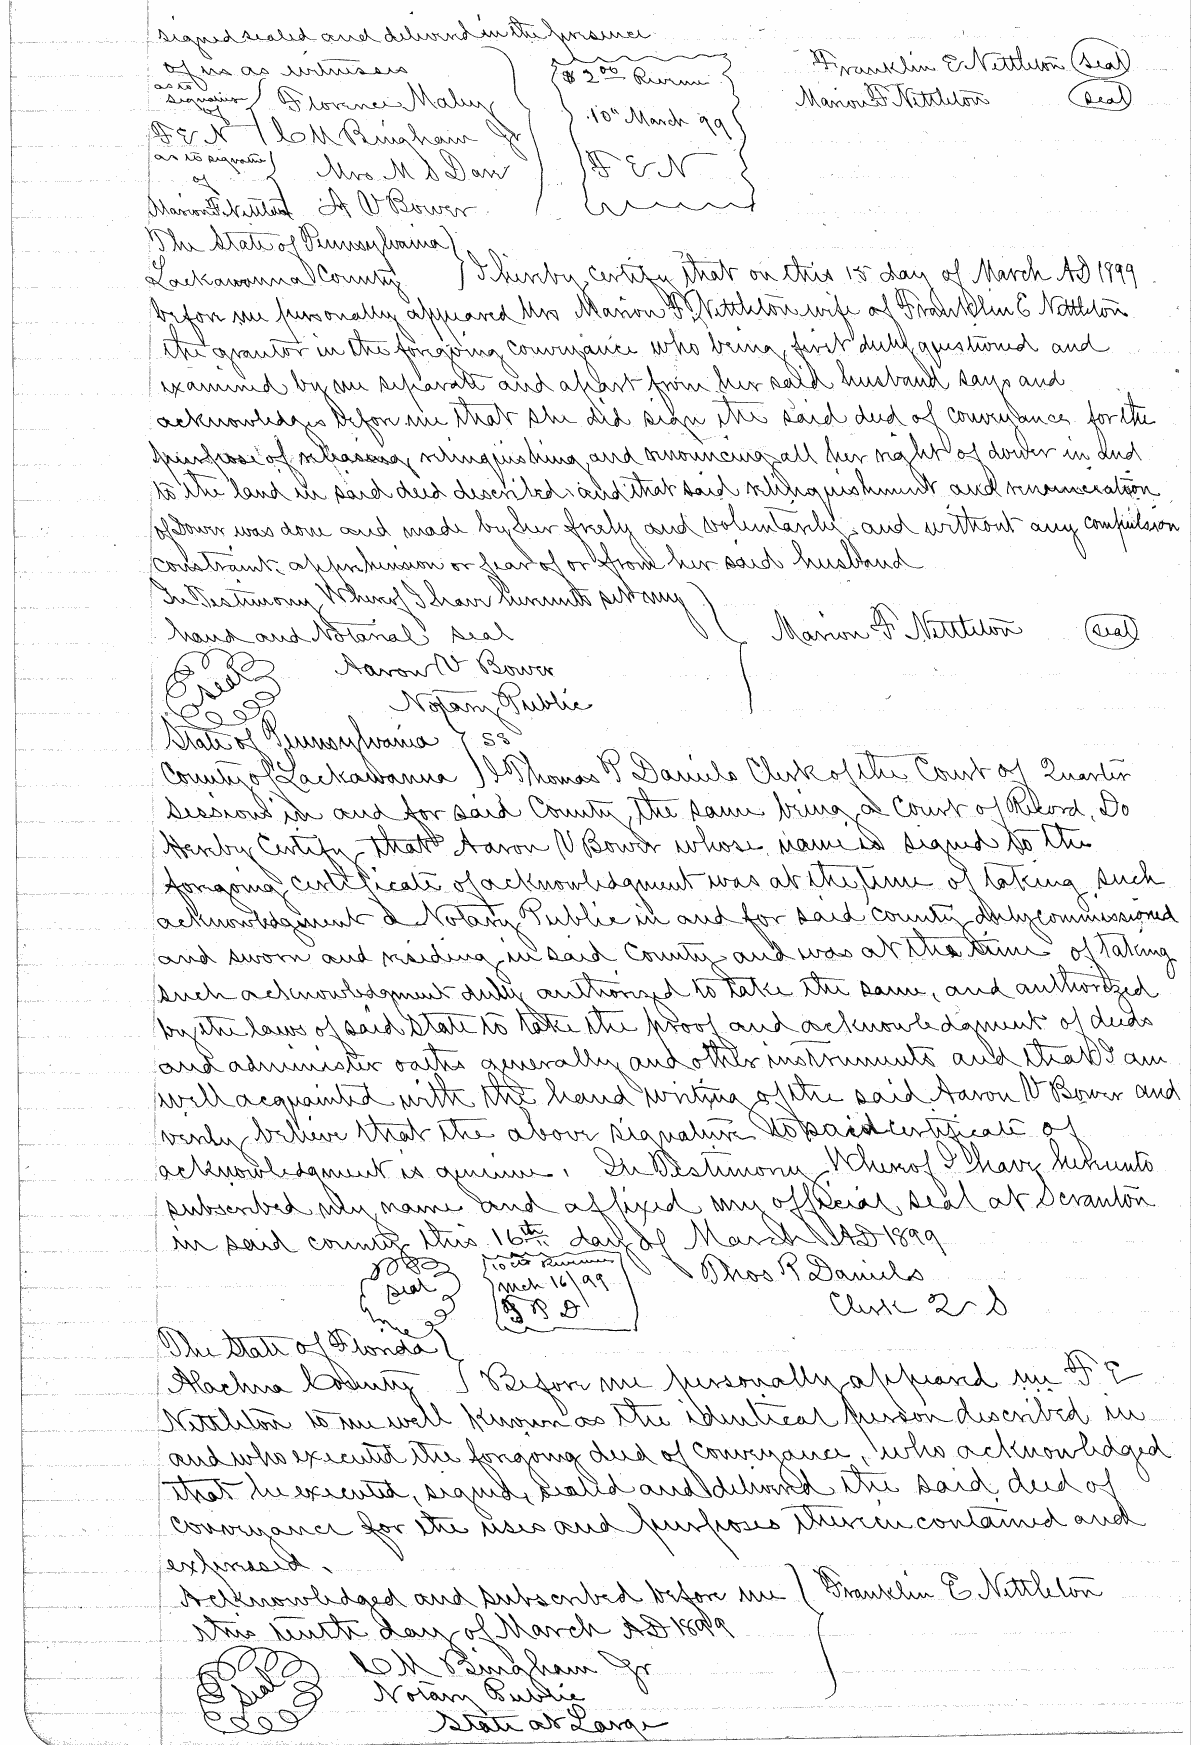 signed sealed and delivered in the presence
of us as witnesses
as to signature of F E N Florence Maley
C M Bingham Jr
as to signature of Marion F. Nettleton Mrs M D Daw
A V Bower
$2.00 Revenue
10th March 99
F E N
Franklin E Nettleton (seal)
Marion F Nettleton (seal)
The State of Pennsylvania
Lackawanna County I hereby certify that on this 15 day of March AD 1899
before me personally appeared Mrs Marion F. Nettleton wife of Franklin E Nettleton
the grantor in the foregoing conveyance who being first duly questioned and
examined by me separate and apart from her said husband says and
acknowledges before me that she did sign the said deed of conveyance for the
purpose of releasing, relinquishing and renouncing all her right of dower in and
to the land in said deed described and that said relinquishment and renunciation
of Dower was done and made by her freely and voluntarily and without any compulsion
constraint, apprehension or fear of or from her said husband
In Testimony Whereof I have hereunto set my
hand and Notarial seal
Marion F Nettleton (seal)
Seal Aaron V Bower
Notary Public
State of Pennsylvania ss
County of Lackawanna I Thomas P Daniels Clerk of the Court of Quarter
Sessions in and for said County, the same being a Court of Record, Do
Hereby Certify, that Aaron V Bower whose name is signed to the
foregoing certificate of acknowledgment was at the time of taking such
acknowledgment a Notary Public in and for said county duly commissioned
and sworn and residing in said County and was at the time of taking
such acknowledgment duly authorized to take the same, and authorized
by the laws of said State to take the proof and acknowledgment of deeds
and administer oaths generally and other instruments and that I am
well acquainted with the hand writing of the said Aaron V Bower and
verily believe that the above signature to said certificate of
acknowledgment is genuine. In Testimony Whereof I have hereunto
subscribed my name and affixed my official seal at Scranton
in said county this 16th day of March AD 1899
Seal
10 cts Revenue
Mch 16/99
T P D
Thos P Daniels
Clerk Q S
The State of Florida
Alachua County Before me personally appeared me F E
Nettleton to me well known as the identical person described in
and who executed the foregoing deed of conveyance, who acknowledged
that he executed, signed, sealed and delivered the said deed of
conveyance for the uses and purposes therein contained and
expressed.
Acknowledged and subscribed before me Franklin E Nettleton
this tenth day of March AD 1899
Seal C M Bingham Jr
Notary Public
State at Large